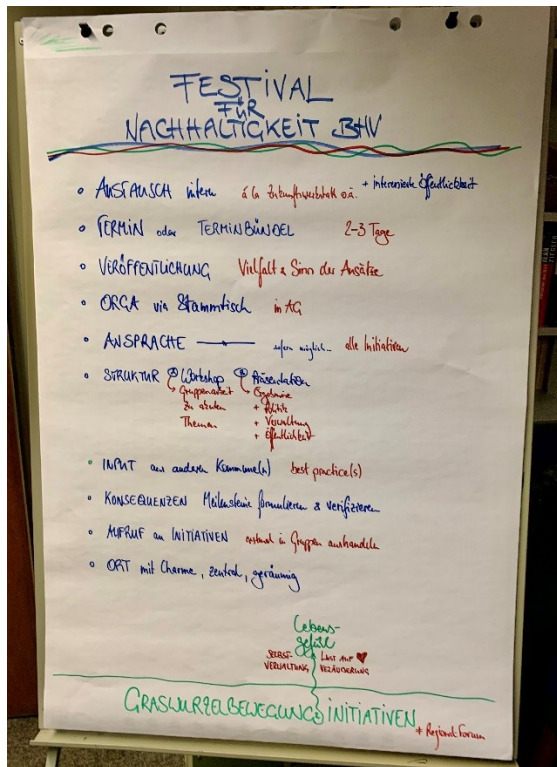 FESTIVAL
FÜR
NACHHALTIGKEIT BHV
• AUSTAUSCH intern á la Zukunftswerkstatt o.ä. + interessierte Öffentlichkeit
• TERMIN oder TERMINBÜNDEL 2-3 Tage
• VERÖFFENTLICHUNG Vielfalt & Sinn der Ansätze
• ORGA via Stammtisch in AG
• ANSPRACHE sofern möglich... alle Initiativen
• STRUKTUR ① Workshop ② Präsentation
Gruppenarbeit Ergebnisse
zu akuten + Politik
Themen + Verwaltung
+ Öffentlichkeit
• INPUT aus anderen Kommune(n) best practice(s)
• KONSEQUENZEN Meilensteine formulieren & verifizieren
• AUFRUF an INITIATIVEN erstmal in Gruppen aushandeln
• ORT mit Charme, zentral, geräumig
Lebens-
gefühl
SELBST- LUST AUF ♥
VERWALTUNG VERÄNDERUNG
GRASWURZELBEWEGUNG INITIATIVEN
+ Regional-Forum